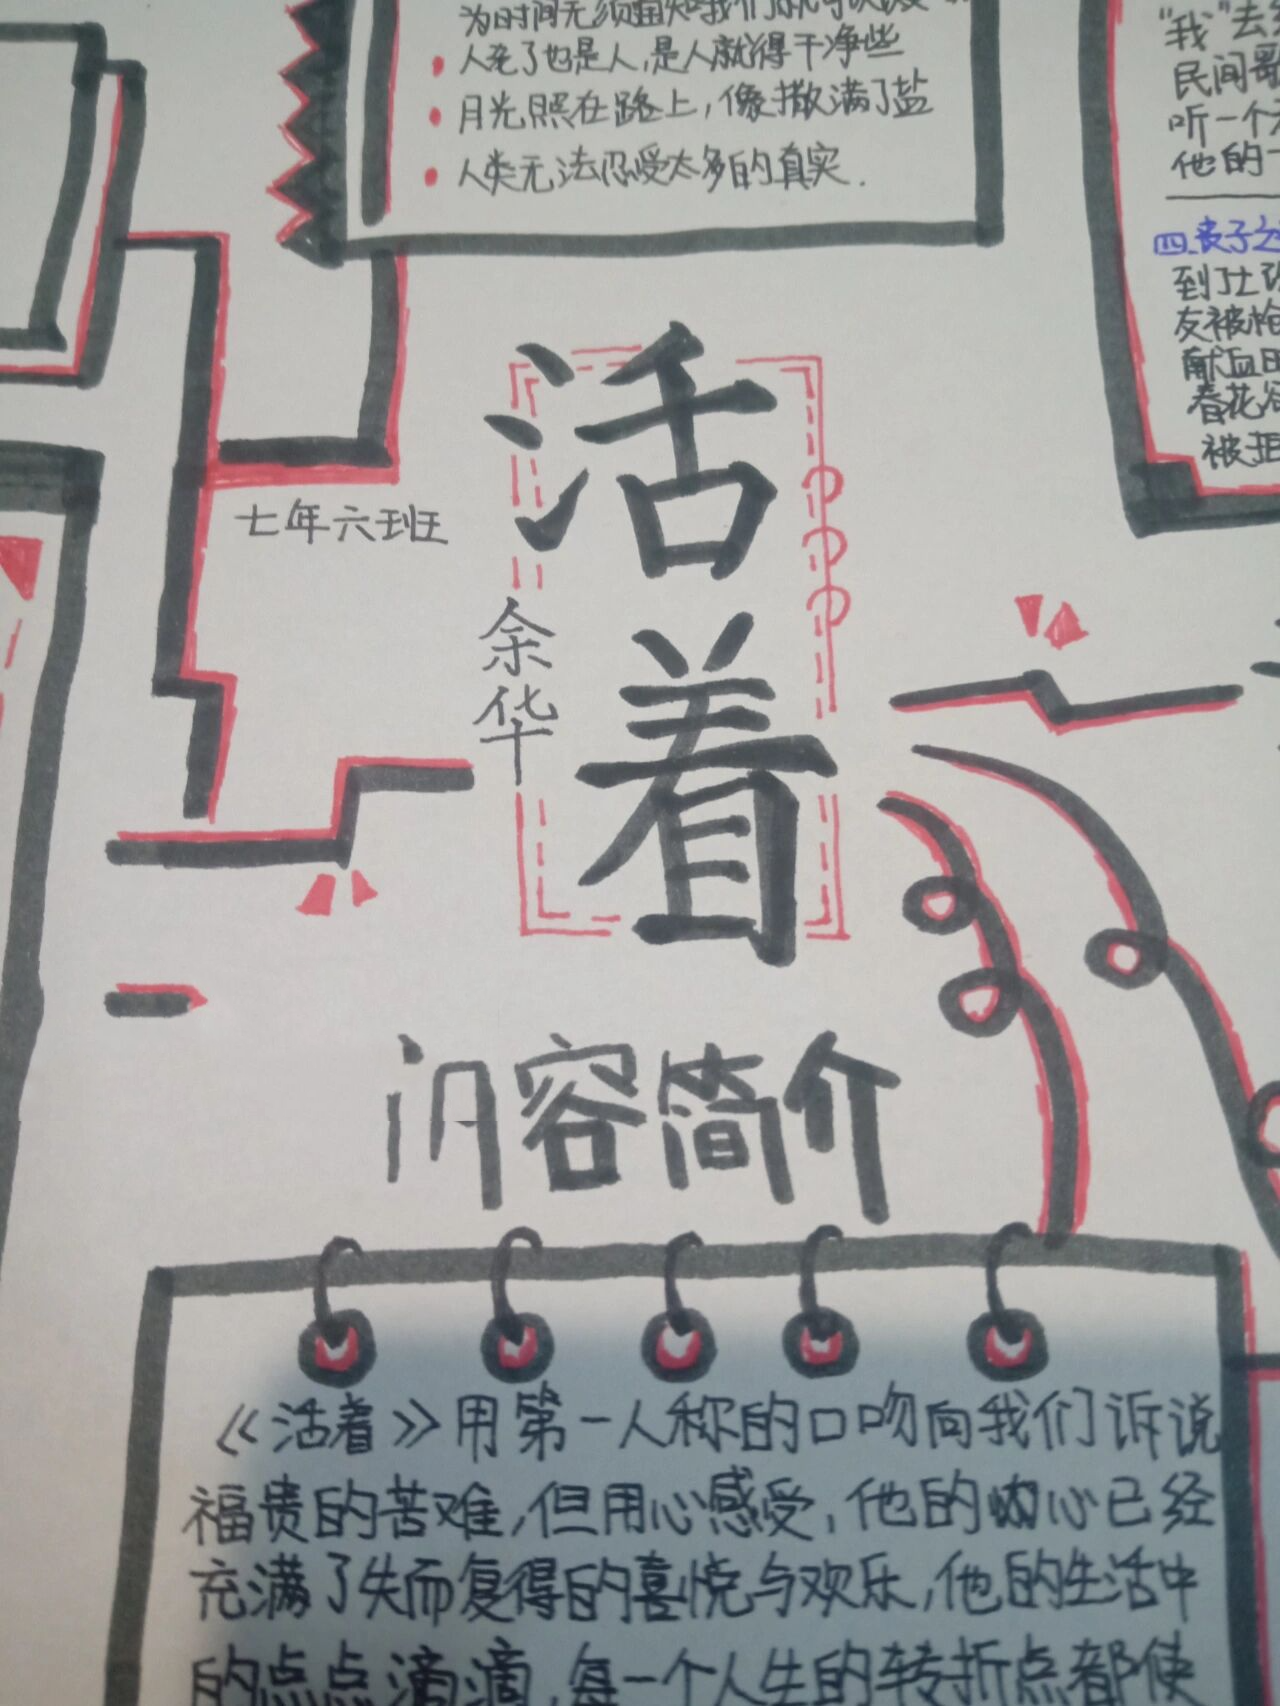 人死了也是人,是人就得干净些
月光照在路上,像撒满了盐
人类无法忍受太多的真实.
"我"去
民间歌
听一个
他的一
四.丧子之
到了
友被枪
献血
春花
被拒
七年六班
活着
余华
内容简介
《活着》用第一人称的口吻向我们诉说
福贵的苦难,但用心感受,他的内心已经
充满了失而复得的喜悦与欢乐,他的生活中
的点点滴滴,每一个人生的转折点都使